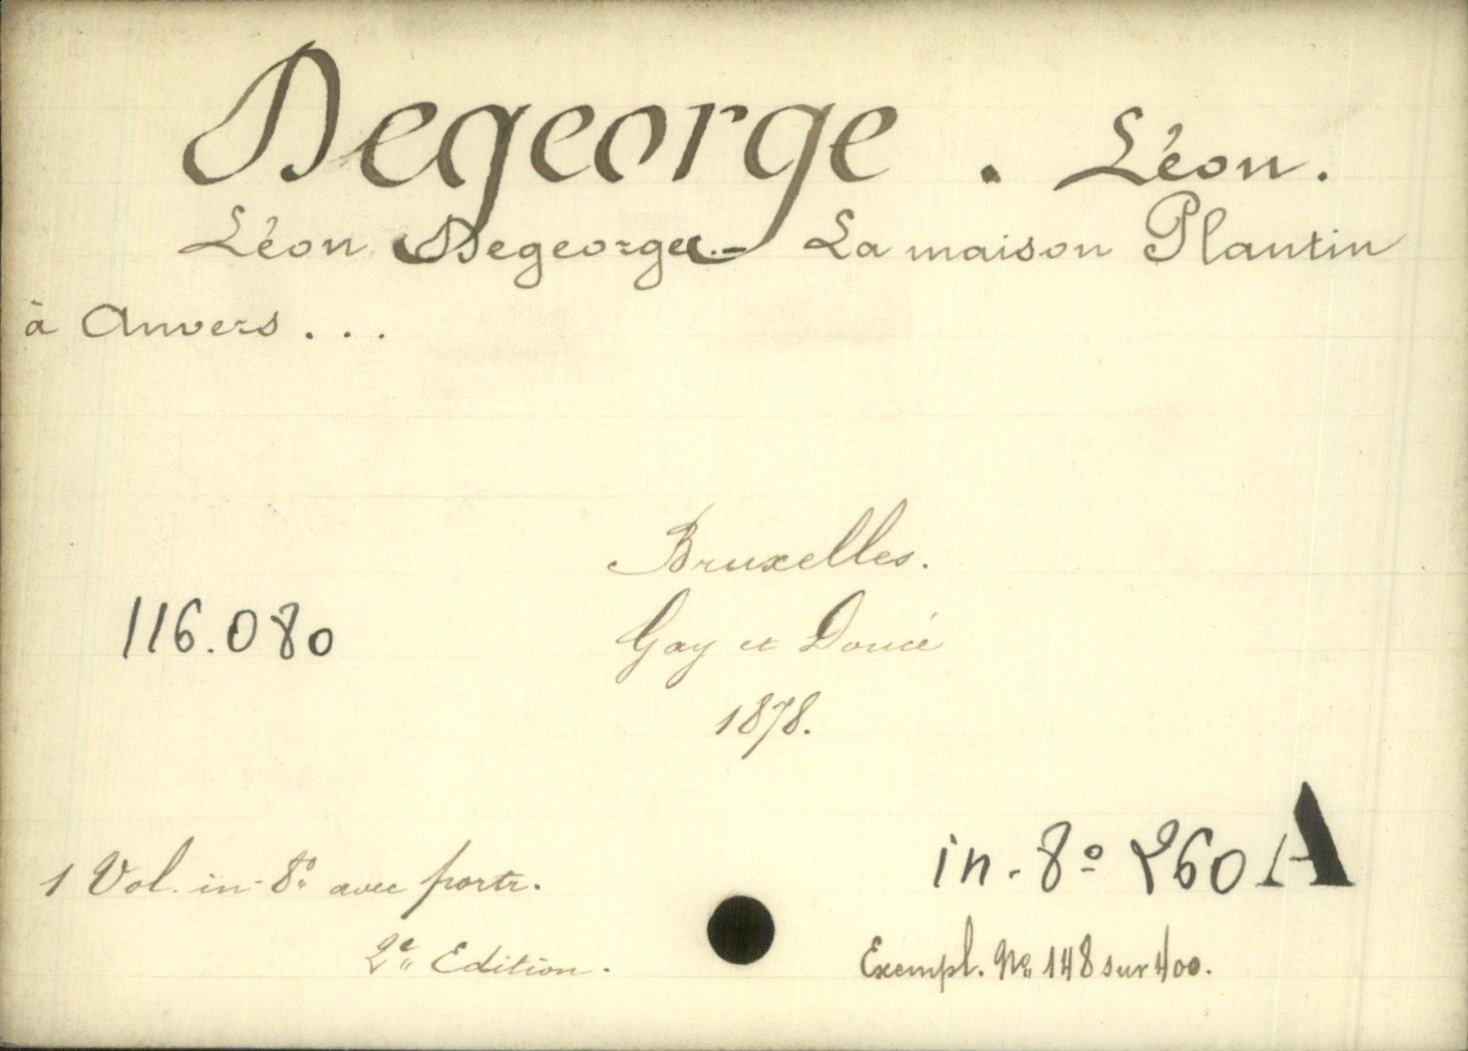 Degeorge . Léon.
Léon Degeorge.- La maison Plantin
à Anvers ...
Bruxelles.
116.080
Gay et Doucé
1878.
in-8º 260 A
1 Vol. in-8º avec portr.
2e Edition.
Exempl. Nº 148 sur 400.